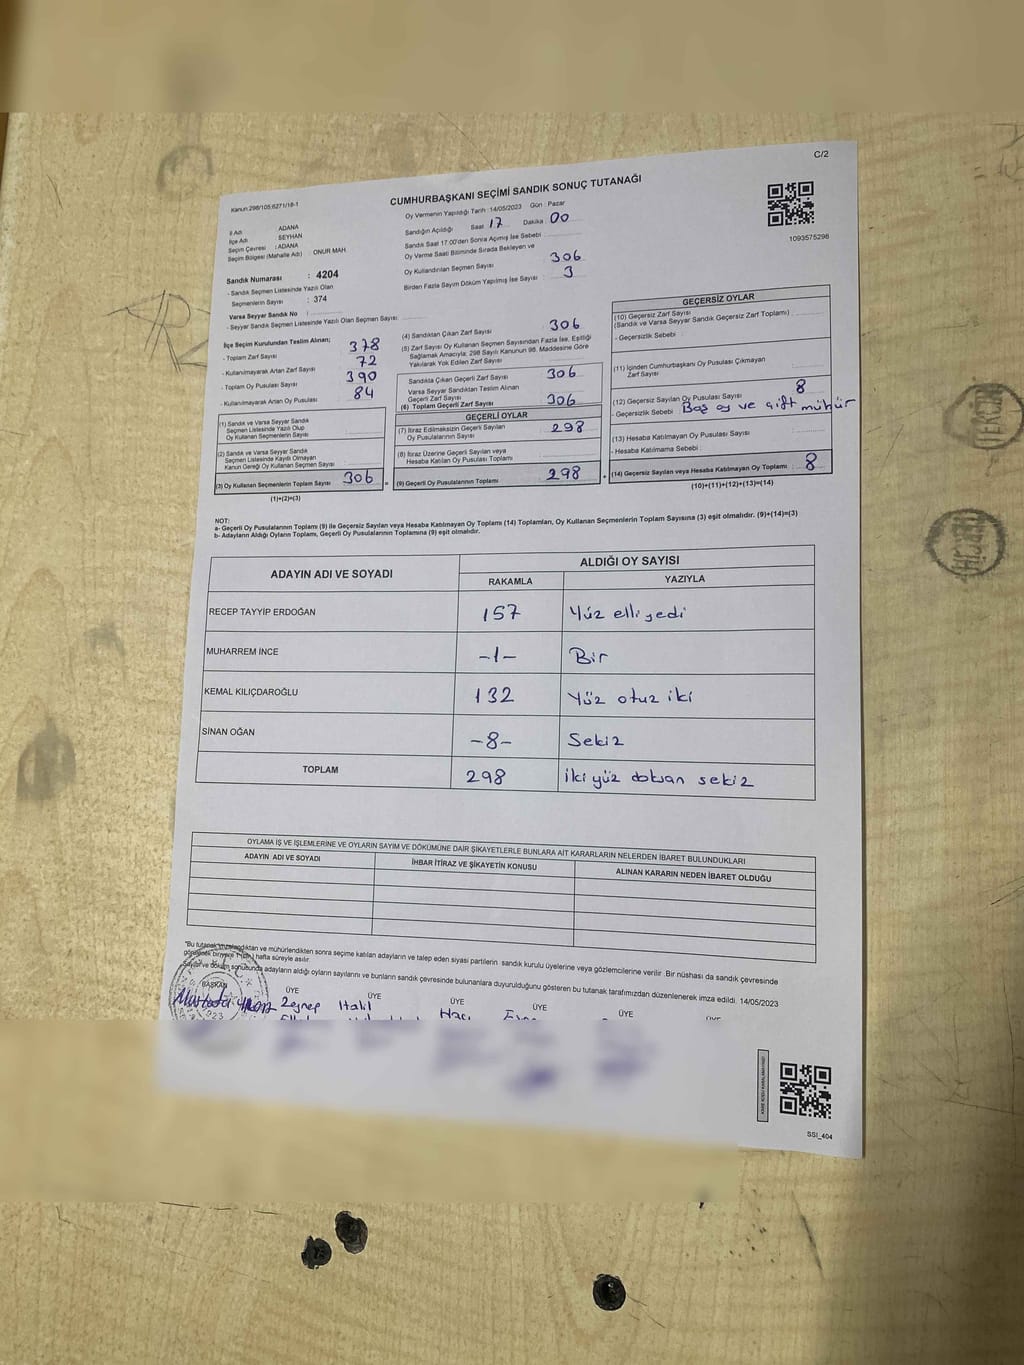 C/2
CUMHURBAŞKANI SEÇİMİ SANDIK SONUÇ TUTANAĞI
Kanun:298/105;6271/18-1
Oy Vermenin Yapıldığı Tarih :14/05/2023 Gün : Pazar
İl Adı : ADANA
İlçe Adı : SEYHAN
Seçim Çevresi : ADANA
Seçim Bölgesi (Mahalle Adı) : ONUR MAH.
Sandığın Açıldığı Saat 17 Dakika 00
Sandık Saat 17:00'den Sonra Açımış İse Sebebi
Oy Verme Saati Bitiminde Sırada Bekleyen ve
Oy Kullandırılan Seçmen Sayısı 306
Birden Fazla Sayım Döküm Yapılmış İse Sayısı : 3
1093575298
Sandık Numarası : 4204
- Sandık Seçmen Listesinde Yazılı Olan
Seçmenlerin Sayısı : 374
Varsa Seyyar Sandık No :
- Seyyar Sandık Seçmen Listesinde Yazılı Olan Seçmen Sayısı
İlçe Seçim Kurulundan Teslim Alınan;
- Toplam Zarf Sayısı 378
- Kullanılmayarak Artan Zarf Sayısı 72
- Toplam Oy Pusulası Sayısı 390
- Kullanılmayarak Artan Oy Pusulası 84
(1) Sandık ve Varsa Seyyar Sandık
Seçmen Listesinde Yazılı Olup
Oy Kullanan Seçmenlerin Sayısı
(2) Sandık ve Varsa Seyyar Sandık
Seçmen Listesinde Kayıtlı Olmayan
Kanun Gereği Oy Kullanan Seçmen Sayısı
(3) Oy Kullanan Seçmenlerin Toplam Sayısı 306 =
(1)+(2)=(3)
(4) Sandıktan Çıkan Zarf Sayısı 306
(5) Zarf Sayısı Oy Kullanan Seçmen Sayısından Fazla İse, Eşitliği
Sağlamak Amacıyla; 298 Sayılı Kanunun 98. Maddesine Göre
Yakılarak Yok Edilen Zarf Sayısı
Sandıkta Çıkan Geçerli Zarf Sayısı 306
Varsa Seyyar Sandıktan Teslim Alınan
Geçerli Zarf Sayısı
(6) Toplam Geçerli Zarf Sayısı 306
GEÇERLİ OYLAR
(7) İtiraz Edilmeksizin Geçerli Sayılan
Oy Pusulalarının Sayısı 298
(8) İtiraz Üzerine Geçerli Sayılan veya
Hesaba Katılan Oy Pusulası Toplamı
(9) Geçerli Oy Pusulalarının Toplamı 298 +
GEÇERSİZ OYLAR
(10) Geçersiz Zarf Sayısı
(Sandık ve Varsa Seyyar Sandık Geçersiz Zarf Toplamı)
- Geçersizlik Sebebi
(11) İçinden Cumhurbaşkanı Oy Pusulası Çıkmayan
Zarf Sayısı
(12) Geçersiz Sayılan Oy Pusulası Sayısı 8
- Geçersizlik Sebebi Boş oy ve çift mühür
(13) Hesaba Katılmayan Oy Pusulası Sayısı
- Hesaba Katılmama Sebebi :
(14) Geçersiz Sayılan veya Hesaba Katılmayan Oy Toplamı 8
(10)+(11)+(12)+(13)=(14)
NOT:
a- Geçerli Oy Pusulalarının Toplamı (9) ile Geçersiz Sayılan veya Hesaba Katılmayan Oy Toplamı (14) Toplamları, Oy Kullanan Seçmenlerin Toplam Sayısına (3) eşit olmalıdır. (9)+(14)=(3)
b- Adayların Aldığı Oyların Toplamı, Geçerli Oy Pusulalarının Toplamına (9) eşit olmalıdır.
ADAYIN ADI VE SOYADI ALDIĞI OY SAYISI
RAKAMLA YAZIYLA
RECEP TAYYİP ERDOĞAN 157 Yüz elli yedi
MUHARREM İNCE -1- Bir
KEMAL KILIÇDAROĞLU 132 Yüz otuz iki
SİNAN OĞAN -8- Sekiz
TOPLAM 298 İki yüz doksan sekiz
OYLAMA İŞ VE İŞLEMLERİNE VE OYLARIN SAYIM VE DÖKÜMÜNE DAİR ŞİKAYETLERLE BUNLARA AİT KARARLARIN NELERDEN İBARET BULUNDUKLARI
ADAYIN ADI VE SOYADI İHBAR İTİRAZ VE ŞİKAYETİN KONUSU ALINAN KARARIN NEDEN İBARET OLDUĞU
"Bu tutanak imzalandıktan ve mühürlendikten sonra seçime katılan adayların ve talep eden siyasi partilerin sandık kurulu üyelerine veya gözlemcilerine verilir. Bir nüshası da sandık çevresinde
görülebilir bir yere 1 (bir) hafta süreyle asılır.
Sayım ve döküm sonucunda adayların aldığı oyların sayılarını ve bunların sandık çevresinde bulunanlara duyurulduğunu gösteren bu tutanak tarafımızdan düzenlenerek imza edildi. 14/05/2023
BAŞKAN ÜYE ÜYE ÜYE ÜYE ÜYE ÜYE
Mustafa Zeynep Halil Hacı
SSİ_404
TERCİH